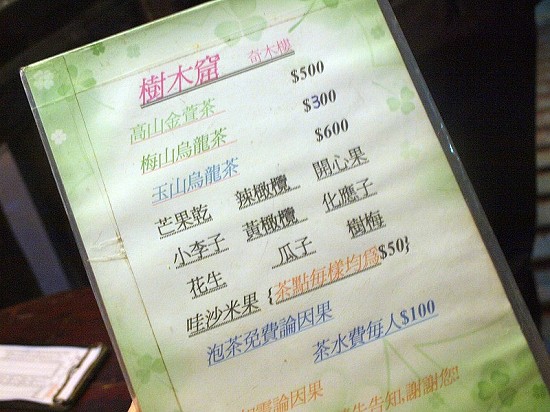 樹木窟 奇木樓
高山金萱茶 $500
梅山烏龍茶 $300
玉山烏龍茶 $600
芒果乾 辣橄欖 開心果
小李子 黃橄欖 化應子
花生 瓜子 樹梅
哇沙米果 {茶點每樣均為$50}
泡茶免費論因果
茶水費每人$100
論因果
告知,謝謝您!